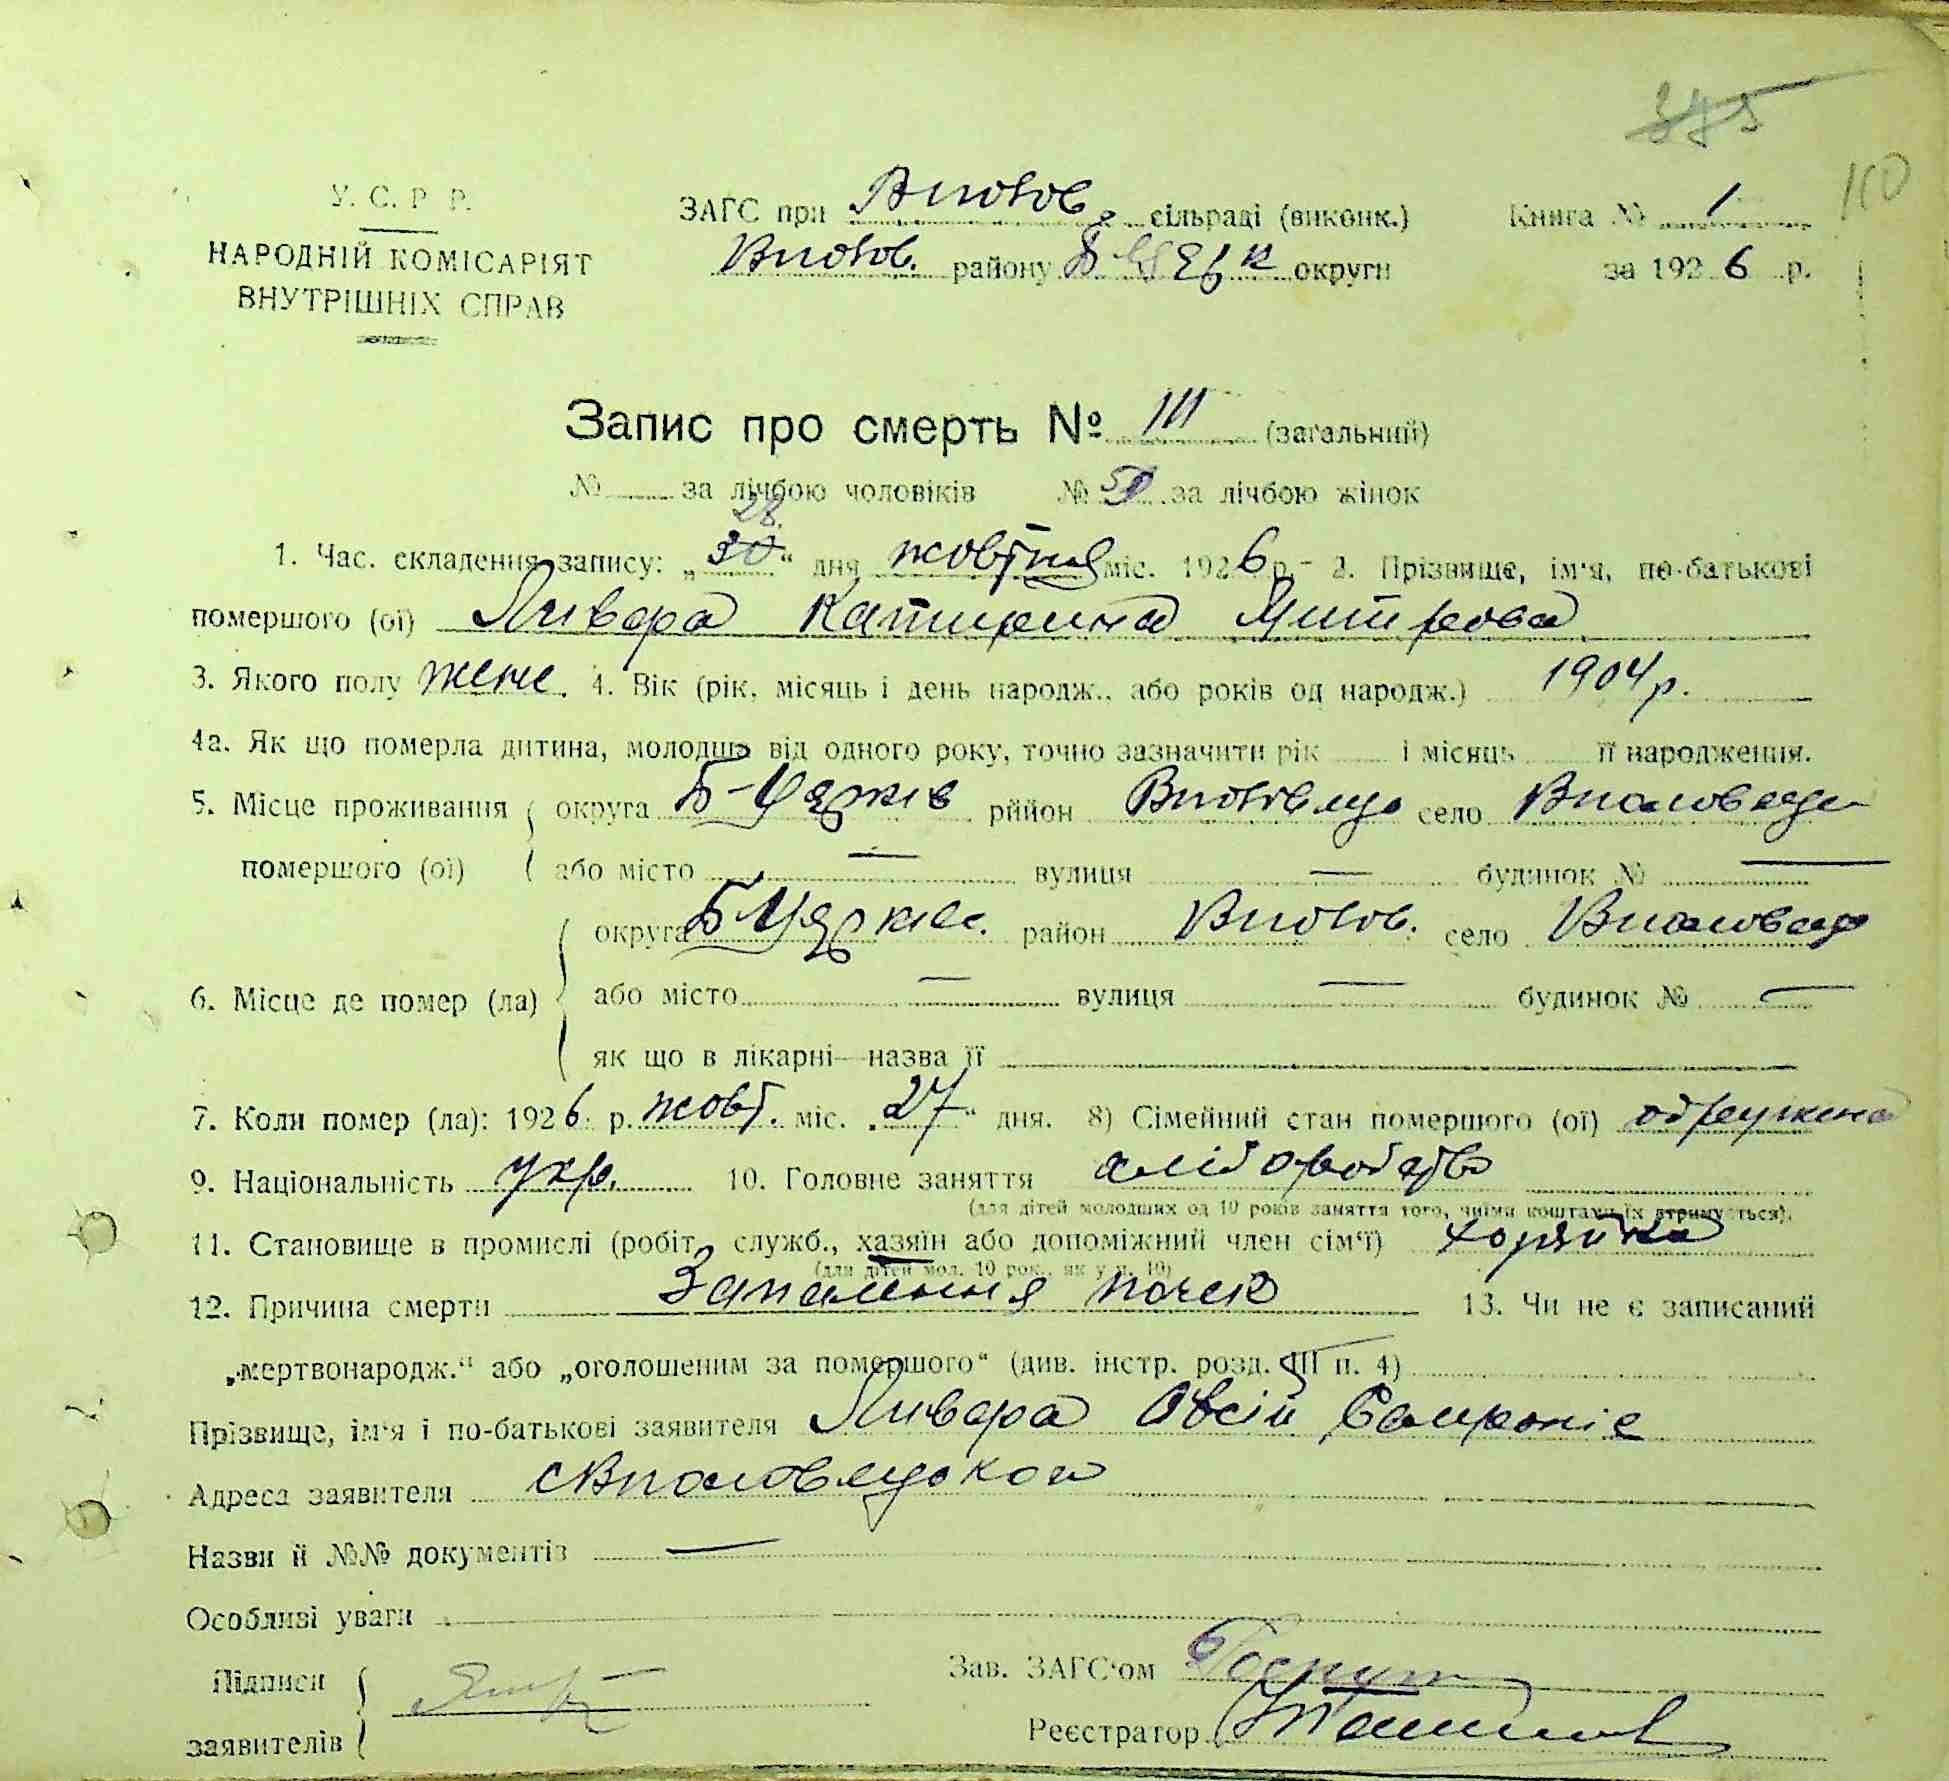 375
110
У. С. Р. Р.
НАРОДНІЙ КОМІСАРІЯТ
ВНУТРІШНІХ СПРАВ
ЗАГС при сільраді (виконк.) Книга № 1
району округи за 1926 р.
Запис про смерть № 111 (загальний)
№ за лічбою чоловіків № за лічбою жінок
28
1. Час. складення запису: „30“ дня жовтня міс. 1926 р.- 2. Прізвище, ім'я, по-батькові
помершого (ої) Катерина Митрова
3. Якого полу жіноч. 4. Вік (рік, місяць і день народж., або років од народж.) 1904 р.
4а. Як що померла дитина, молодша від одного року, точно зазначити рік і місяць її народження.
5. Місце проживання { округа Б-Церків район село
помершого (ої) або місто — вулиця — будинок № —
округа Б Церків. район село
6. Місце де помер (ла) { або місто — вулиця — будинок № —
як що в лікарні—назва її
7. Коли помер (ла): 1926 р. жовт. міс. „27“ дня. 8) Сімейний стан помершого (ої) одружена
9. Національність укр. 10. Головне заняття хліборобство
(для дітей молодших од 10 років заняття того, чиїми коштами їх втримується).
11. Становище в промислі (робіт, служб., хазяїн або допоміжний член сім'ї) хозяйка
(для дітей мол. 10 рок., як у п. 10)
12. Причина смерти Запалення почек 13. Чи не є записаний
„мертвонародж.“ або „оголошеним за помершого“ (див. інстр. розд. III п. 4)
Прізвище, ім'я і по-батькові заявителя Овсій
Адреса заявителя
Назви й №№ документів —
Особливі уваги
Підписи
заявителів {
Зав. ЗАГС'ом
Реєстратор